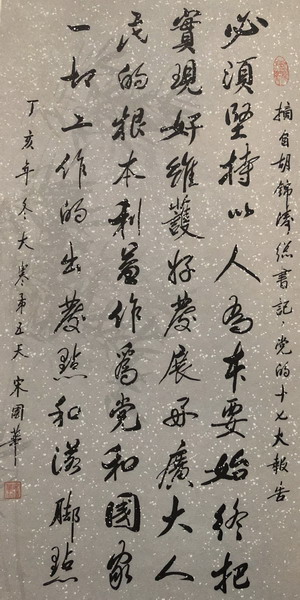 摘自胡錦濤總書記：党的十七大報告
必須堅持以人為本要始終把
實現好維護好發展好廣大人
民的根本利益作爲党和國家
一切工作的出發點和落脚點
丁亥年冬大寒第五天 宋國華